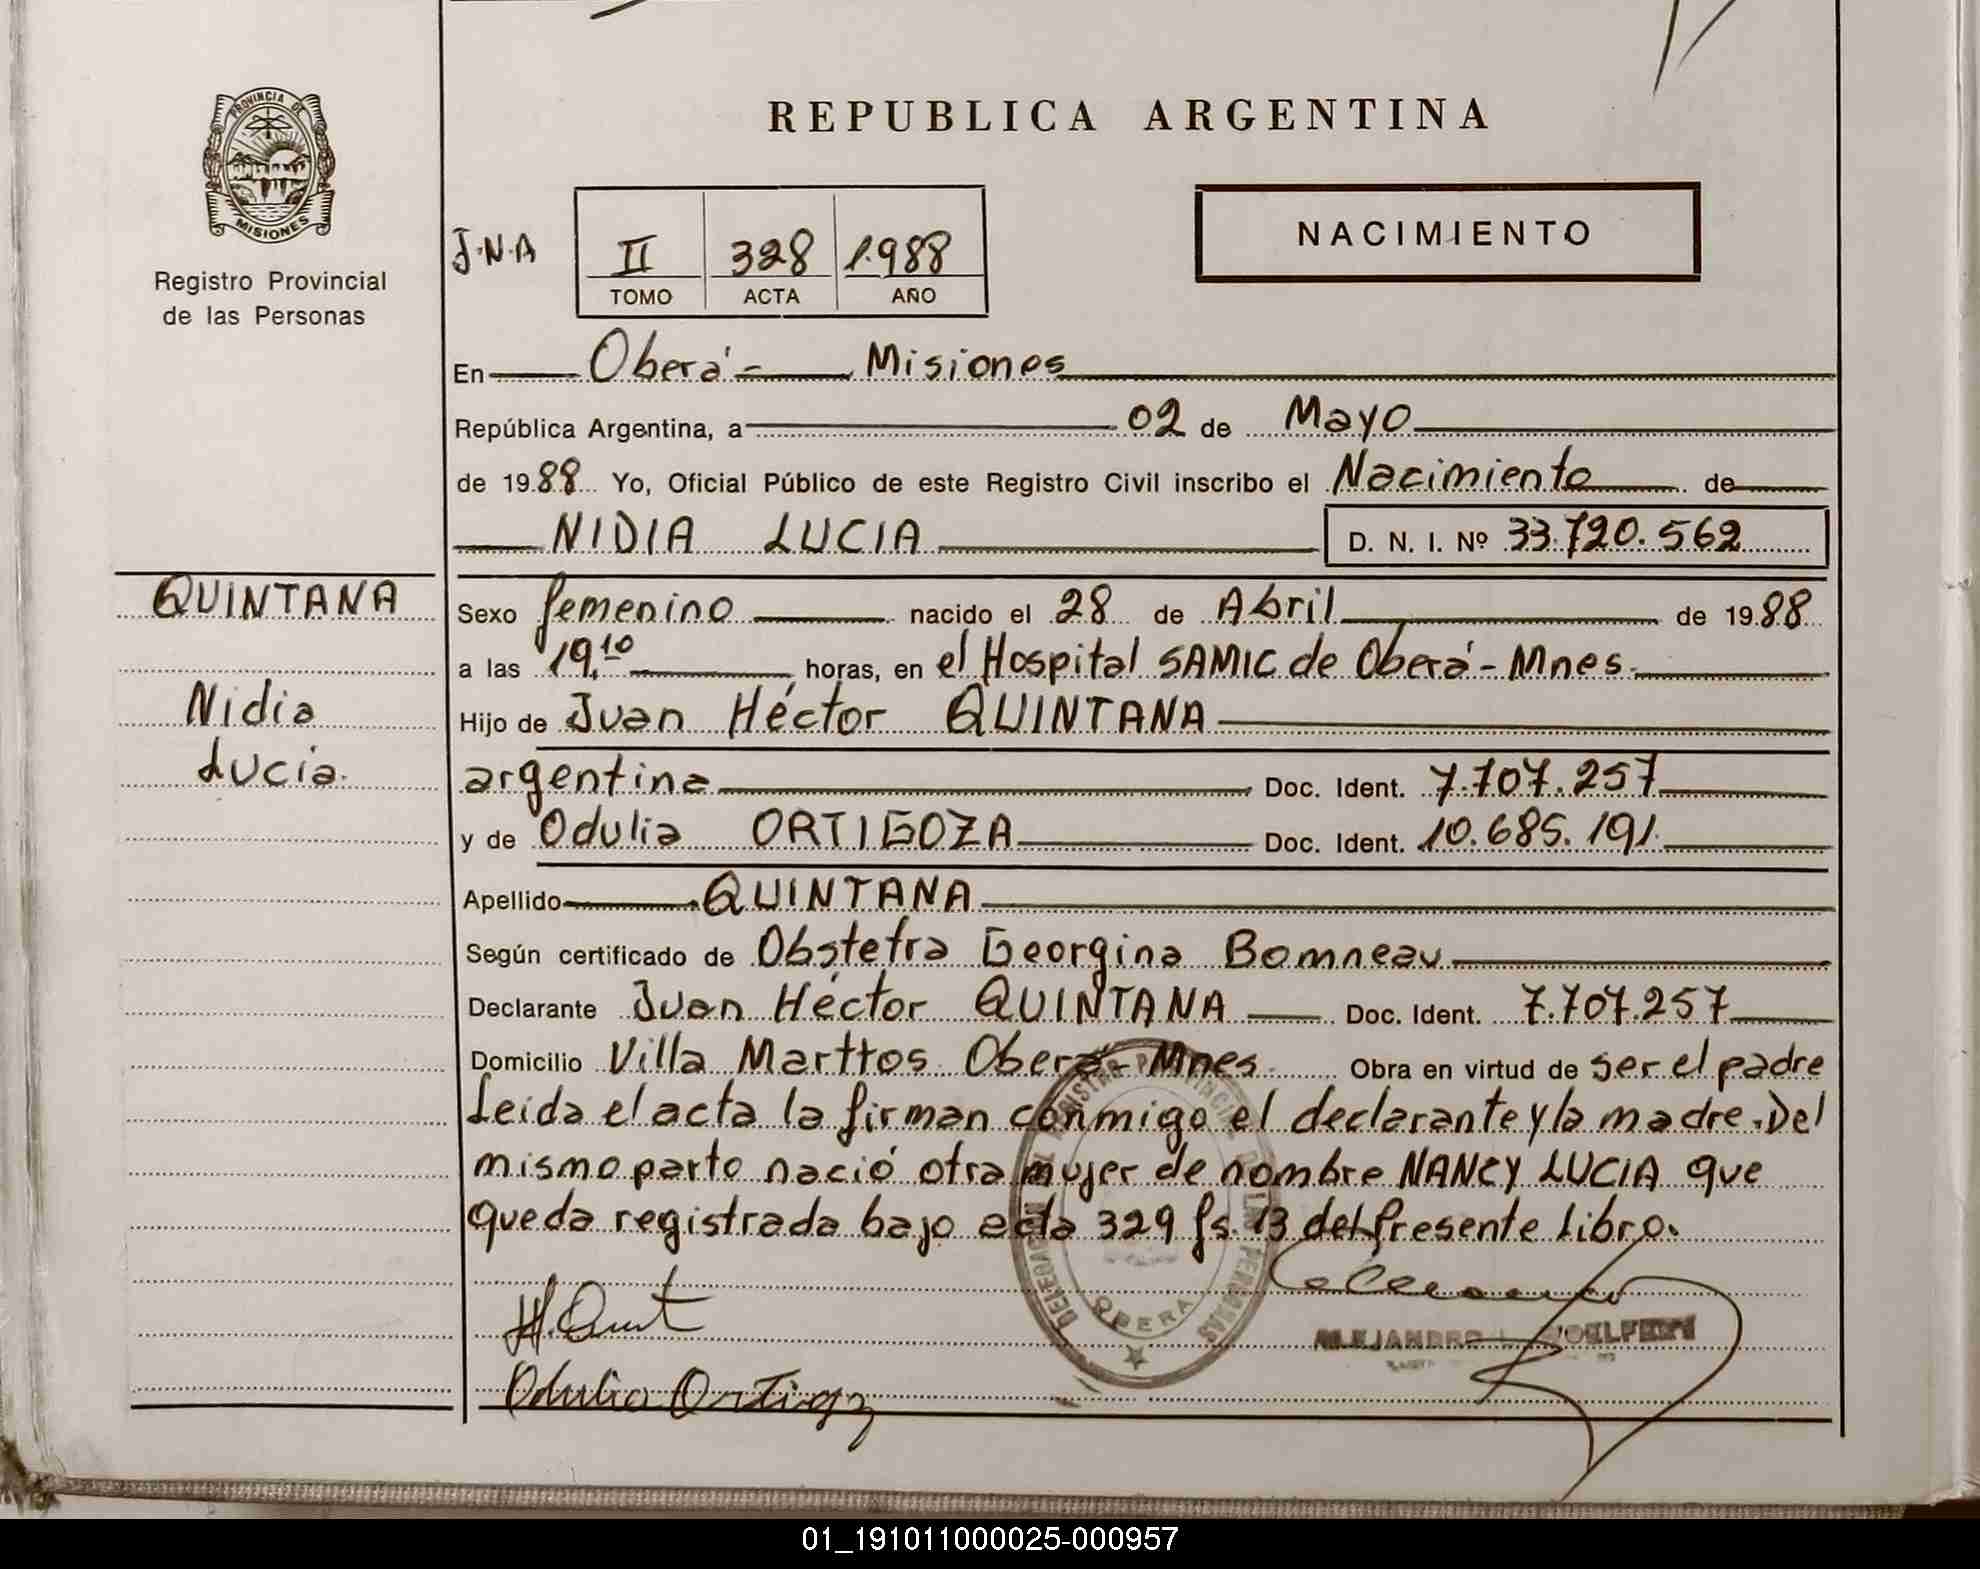 REPUBLICA ARGENTINA
PROVINCIA DE
MISIONES
Registro Provincial
de las Personas
J.N.A
II 328 1.988
TOMO ACTA AÑO
NACIMIENTO
En Oberá - Misiones
República Argentina, a 02 de Mayo
de 1988 Yo, Oficial Público de este Registro Civil inscribo el Nacimiento de
NIDIA LUCIA D. N. I. Nº 33.720.562
QUINTANA
Nidia
Lucia.
Sexo femenino nacido el 28 de Abril de 1988
a las 19,10 horas, en el Hospital SAMIC de Oberá - Mnes.
Hijo de Juan Héctor QUINTANA
argentina Doc. Ident. 7.707.257
y de Odulia ORTIGOZA Doc. Ident. 10.685.191.
Apellido QUINTANA
Según certificado de Obstetra Georgina Bomneau
Declarante Juan Héctor QUINTANA Doc. Ident. 7.707.257
Domicilio Villa Marttos Oberá - Mnes. Obra en virtud de ser el padre
Leida el acta la firman conmigo el declarante y la madre. Del
mismo parto nació otra mujer de nombre NANCY LUCIA que
queda registrada bajo acta 329 fs. 13 del presente libro.
OBERA
Odulia Ortigoz
ALEJANDRO
01_191011000025-000957